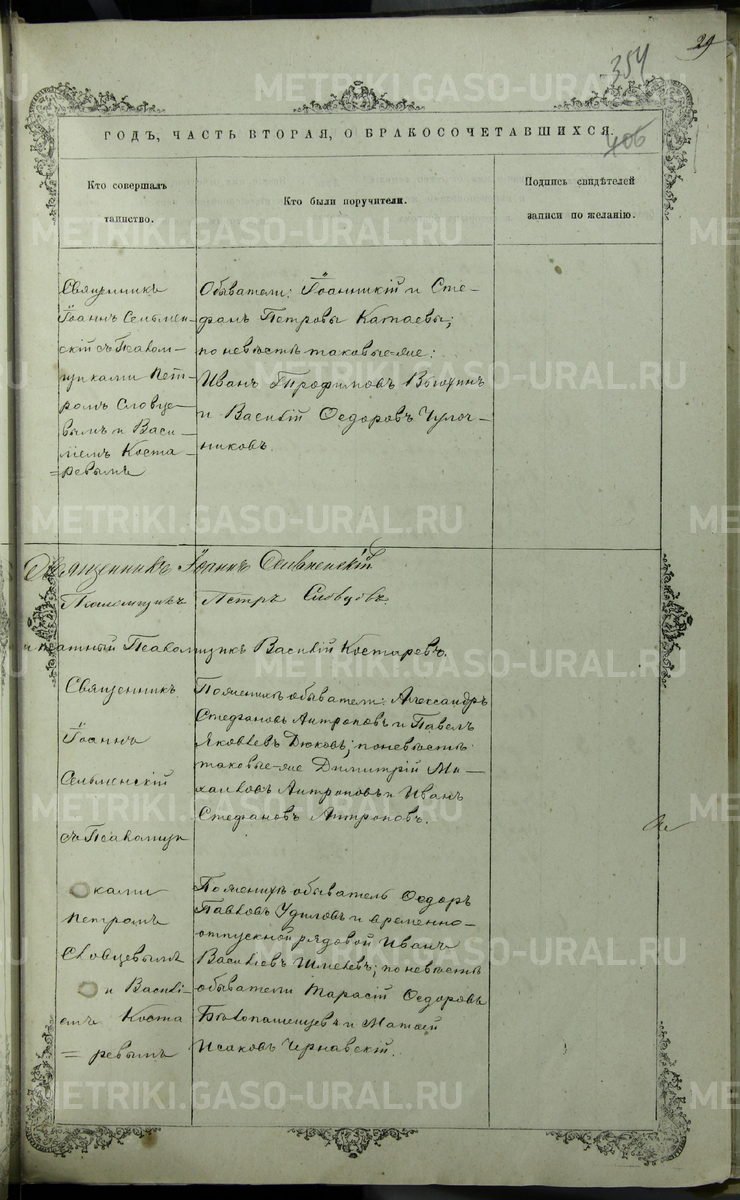 29
354
406
ГОДЪ, ЧАСТЬ ВТОРАЯ, О БРАКОСОЧЕТАВШИХСЯ.
Кто совершалъ
таинство.
Кто были поручители.
Подпись свидѣтелей
записи по желанію.
Священникъ
Іоаннъ Сельмен-
скій съ Псалом-
щиками Пет-
ромъ Словце-
вымъ и Васи-
ліемъ Коста-
=ревымъ
Обыватели: Іоанникій и Сте-
фанъ Петровы Катаевы;
по невѣстѣ таковые-же:
Иванъ Трофимовъ
и Василій Ѳедоровъ Чулоч-
никовъ.
Священникъ Іоаннъ Сельменскій
Псаломщикъ Петръ Словцовъ.
Псаломщикъ Василій Костаревъ.
Священникъ
Іоаннъ
Сельменскій
съ Псаломщи
ками
Петромъ
Словцевымъ
и Василі-
емъ Коста
=ревымъ
По женихѣ обыватели: Александръ
Стефановъ Антроповъ и Павелъ
Яковлевъ Дюковъ; по невѣстѣ
таковые-же Димитрій Ми-
хаиловъ Антроповъ и Иванъ
Стефановъ Антроповъ.
По женихѣ обыватель Ѳедоръ
Павловъ Удиловъ и временно-
отпускной рядовой Иванъ
Васильевъ Шмелевъ; по невѣстѣ
обыватели Тарасій Ѳедоровъ
Бѣлопашенцевъ и Матѳей
Исаковъ Чернавскій.
METRIKI.GASO-URAL.RU